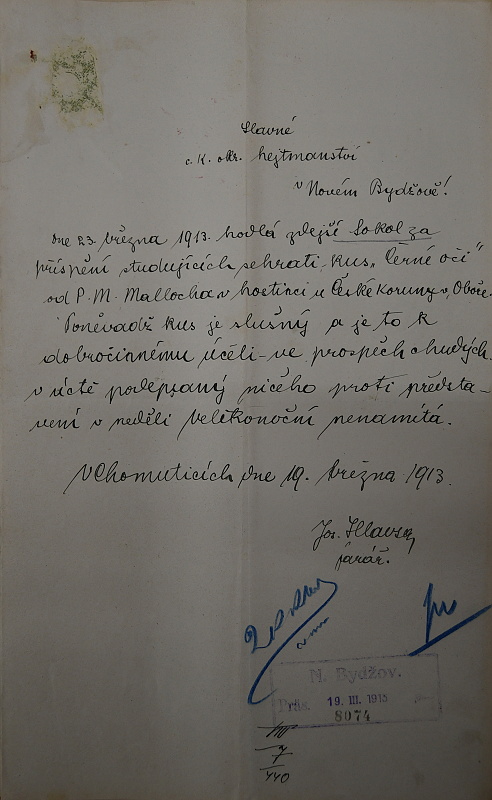 Slavné
c. k. okr. hejtmanství
v Novém Bydžově!
Dne 23. března 1913. hodlá zdejší Sokol za
přispění studujících sehrati kus „Černé oči"
od P. M. Mallocha v hostinci u České Koruny v Oboře.
Poněvadž kus je slušný a je to k
dobročinnému účeli - ve prospěch chudých,
v úctě podepsaný ničeho proti předsta-
vení v neděli velikonoční nenamítá.
V Chomuticích dne 19. března 1913.
Jos. Hlavsa
farář.
N. Bydžov.
Präs. 19. III. 1913
8074
7
440